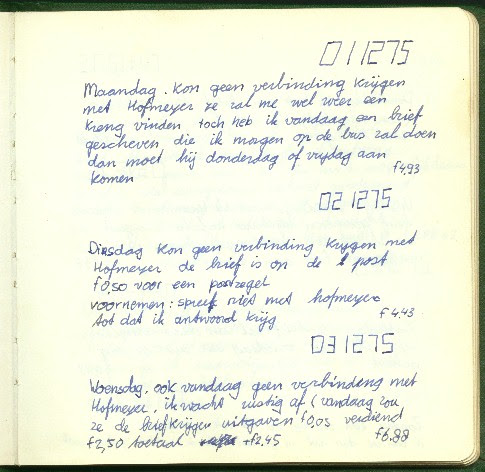 011275
Maandag. Kon geen verbinding krijgen
met Hofmeyer ze zal me wel weer een
kreng vinden toch heb ik vandaag een brief
gescheven die ik morgen op de bus zal doen
dan moet hij donderdag of vrijdag aan
komen
f4,93
021275
Dinsdag Kon geen verbinding krijgen met
Hofmeyer de brief is op de post
f0,50 voor een postzegel
voornemen: spreek niet met hofmeyer
tot dat ik antwoord krijg
f4,43
031275
Woensdag. ook vandaag geen verbinding met
Hofmeyer, ik wacht rustig af (vandaag zou
ze de brief krijgen uitgaven f0,05 verdiend
f2,50 totaal +f2,45
f6,88